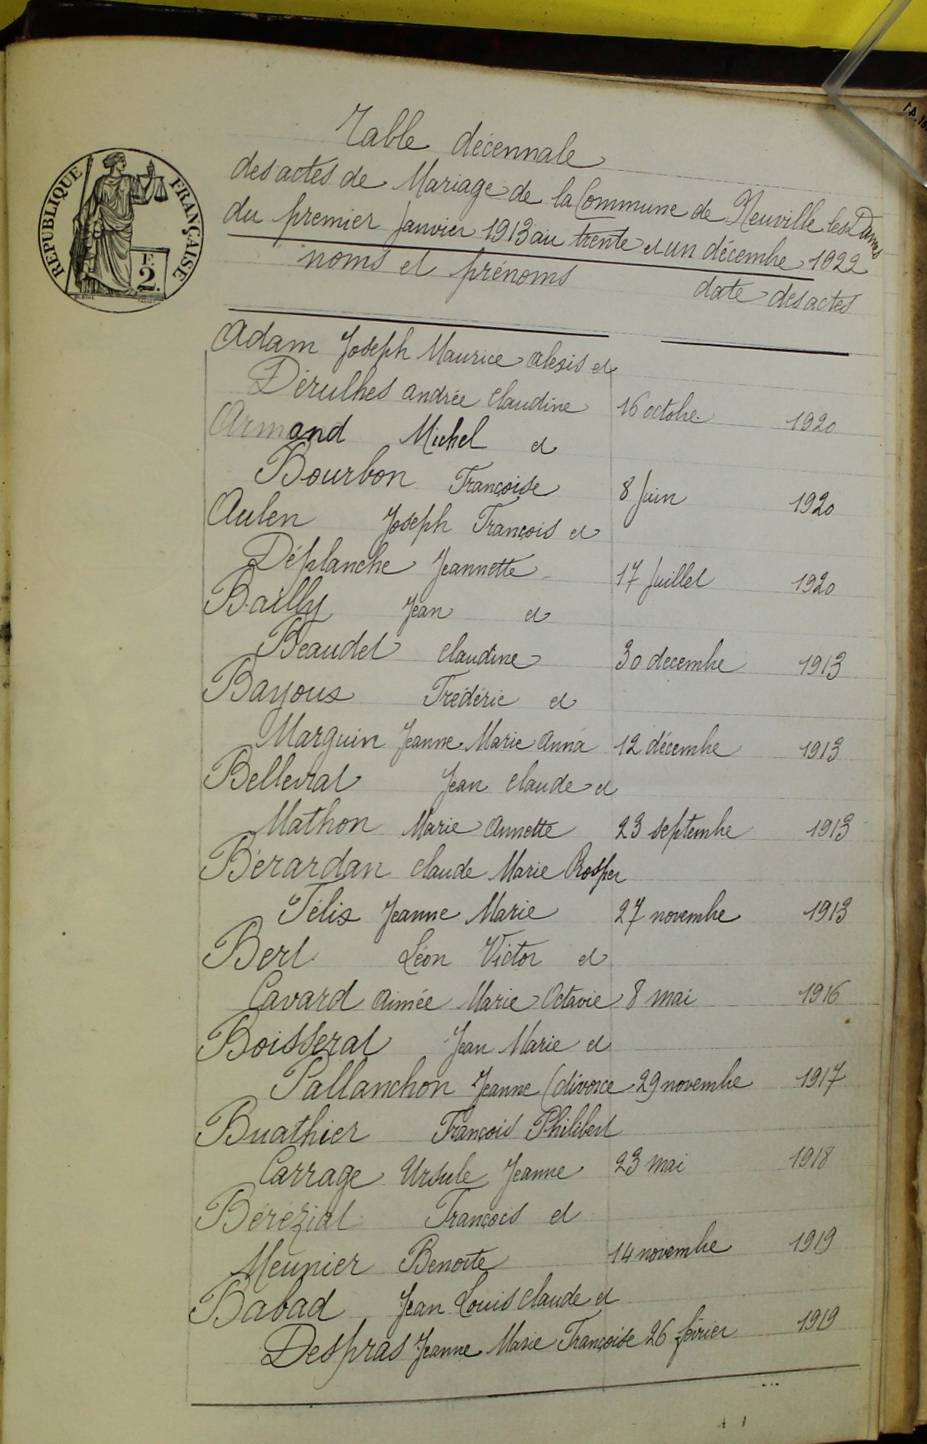 RÉPUBLIQUE FRANÇAISE
F.
2.
Table décennale
des actes de Mariage de la Commune de Neuville les Dames
du premier Janvier 1913 au trente et un décembre 1922
noms et prénoms date des actes
Adam Joseph Maurice alexis et
Dérulhes andrée Claudine 16 octobre 1920
Armand Michel et
Bourbon Françoise 8 Juin 1920
Aulen Joseph François et
Déplanche Jeannette 17 Juillet 1920
Bailly Jean et
Beaudet claudine 30 décembre 1913
Bayous Fréderic et
Marguin Jeanne Marie Anna 12 décembre 1913
Belleval Jean claude et
Mathon Marie Annette 23 septembre 1913
Bérardan claude Marie Rosper
Félix Jeanne Marie 27 novembre 1913
Berl Léon Victor et
Cavard aimée Marie Octavie 8 mai 1916
Boisserat Jean Marie et
Pallanchon Jeanne (divorce 29 novembre 1917
Buathier François Philibert
Carrage Ursule Jeanne 23 mai 1918
Bérézial François et
Meunier Benoite 14 novembre 1919
Babad Jean Louis claude et
Despras Jeanne Marie Françoise 26 février 1919